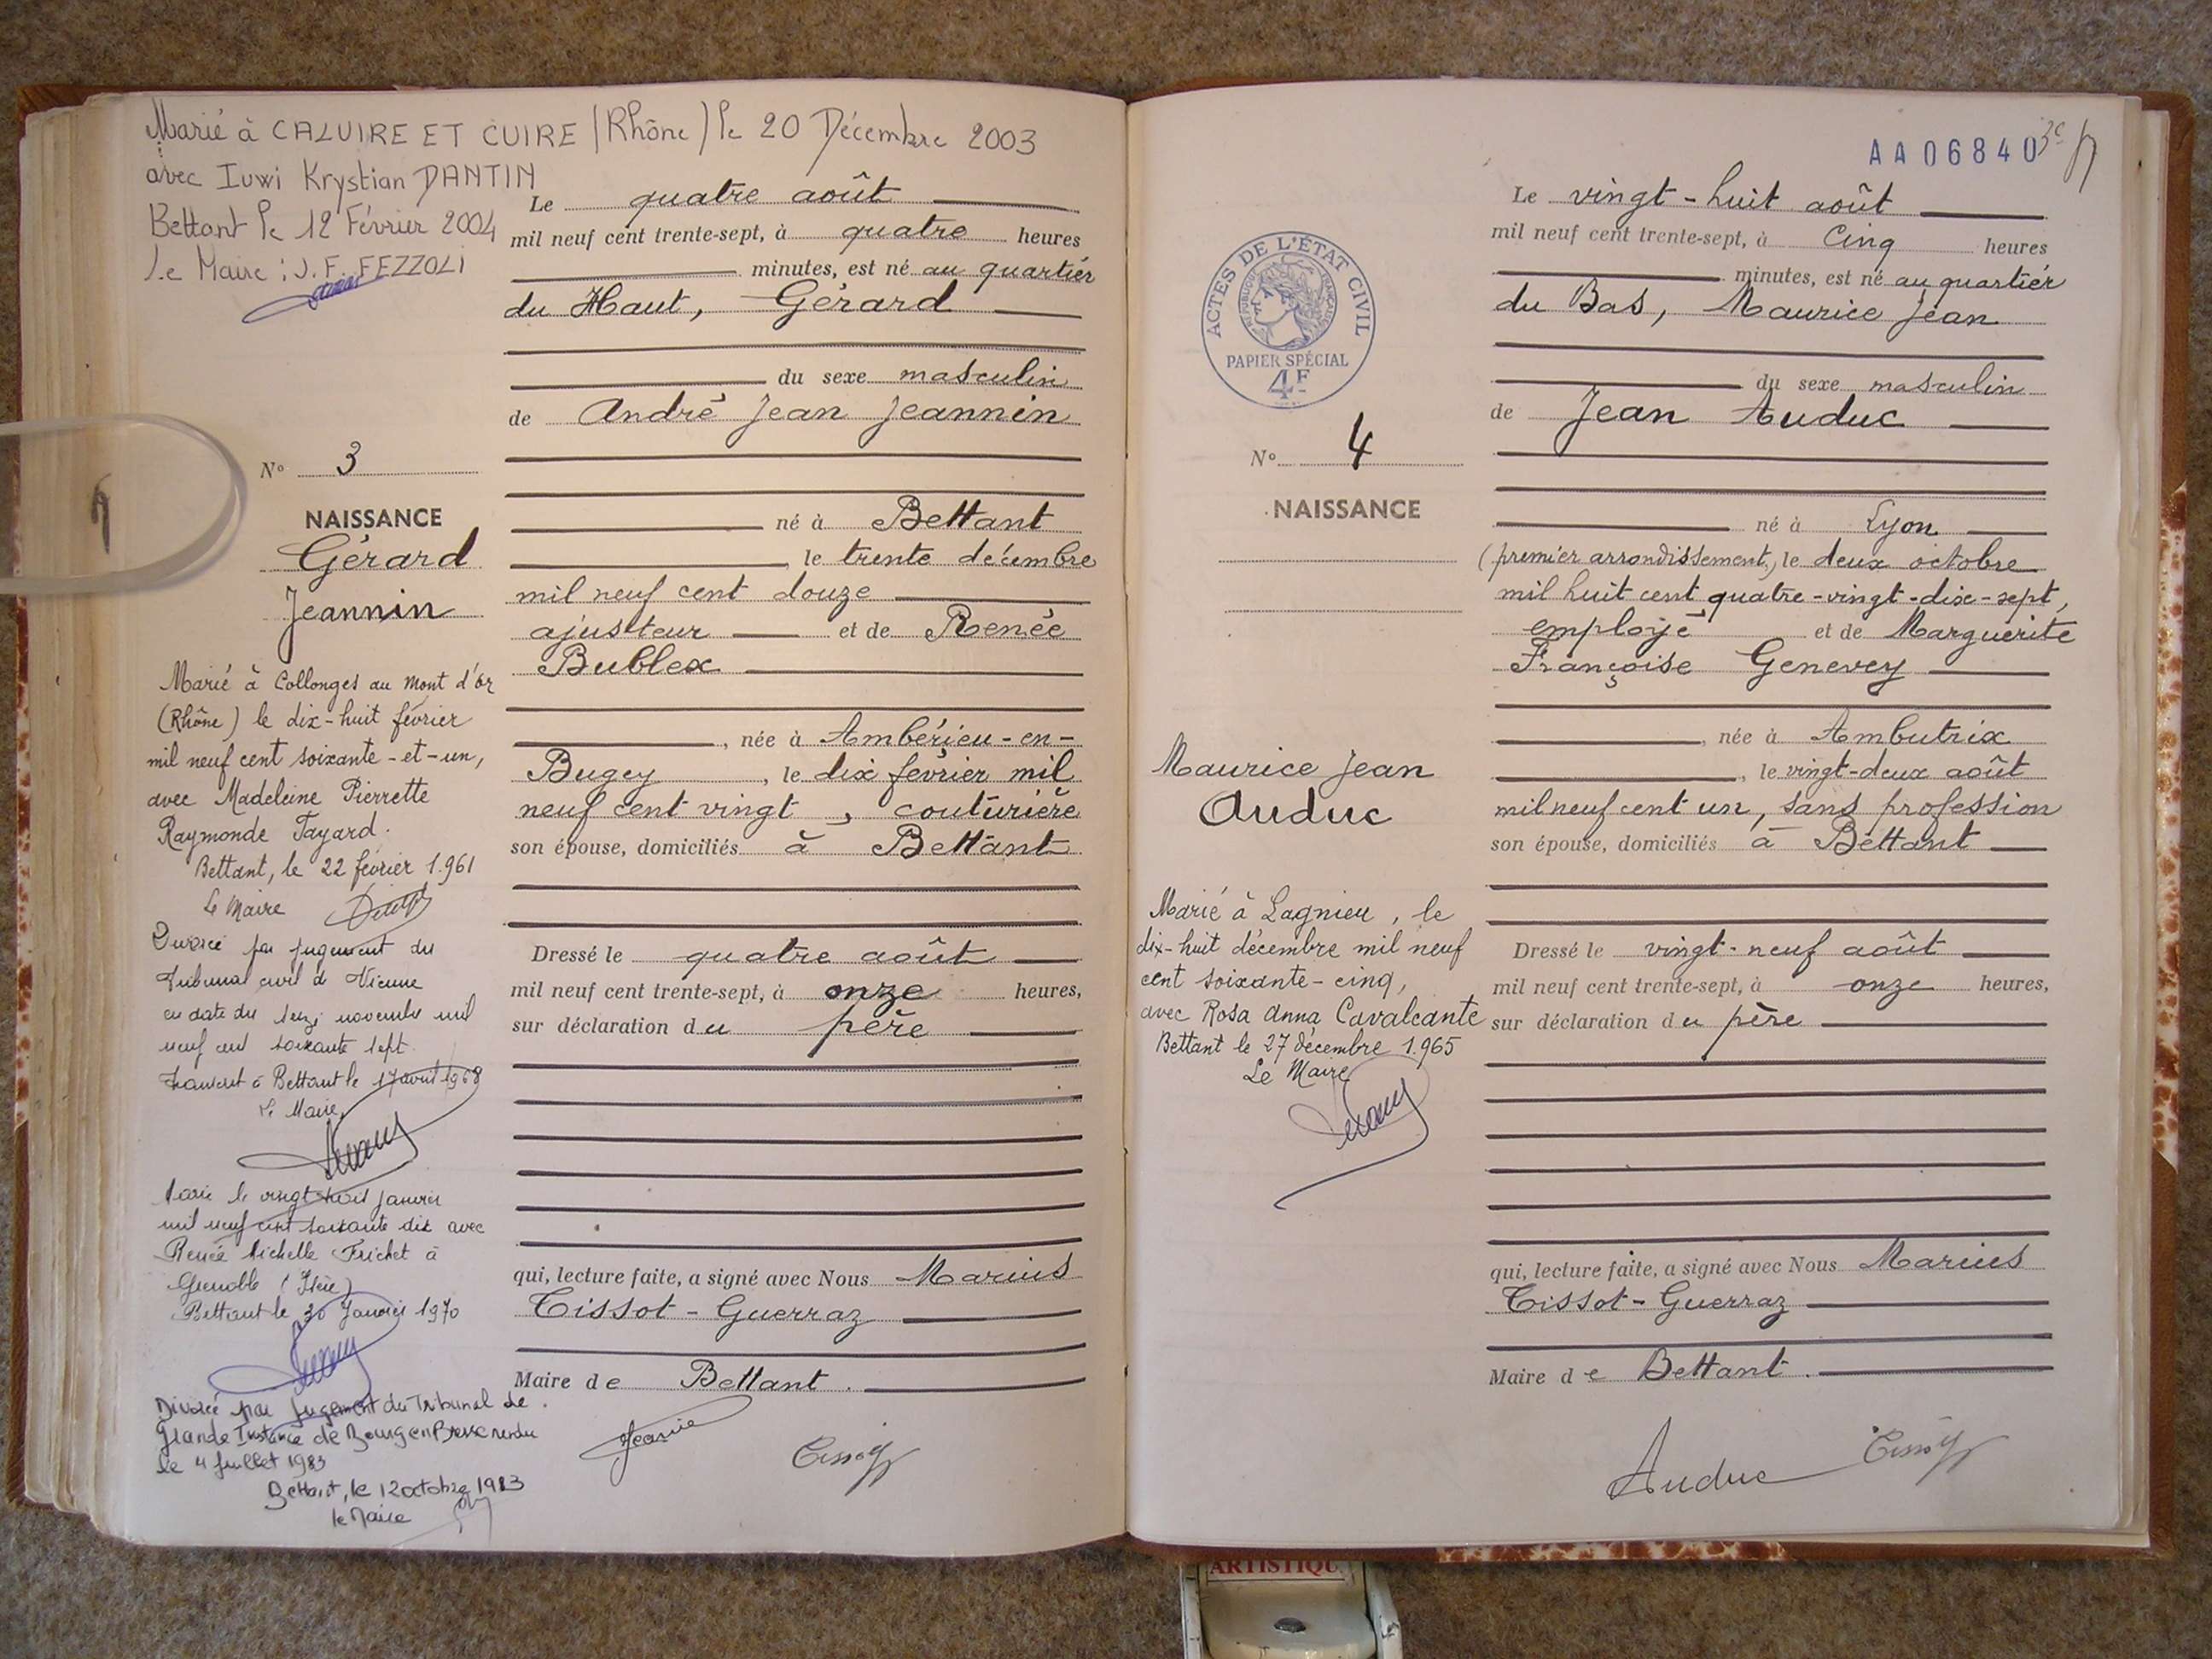 Marié à CALUIRE ET CUIRE (Rhône) le 20 Décembre 2003
avec Iuwi Krystian DANTIN
Bettant le 12 Février 2004
Le Maire : J. F. FEZZOLI
Le quatre août
mil neuf cent trente-sept, à quatre heures
minutes, est né au quartier
du Haut, Gérard
du sexe masculin
de André Jean Jeannin
né à Bettant
, le trente décembre
mil neuf cent douze
ajusteur et de Renée
Bublex
, née à Ambérieu-en-
Bugey , le dix février mil
neuf cent vingt , couturière
son épouse, domiciliés à Bettant
Dressé le quatre août
mil neuf cent trente-sept, à onze heures,
sur déclaration du père
qui, lecture faite, a signé avec Nous Marius
Tissot-Guerraz
Maire de Bettant.
N° 3
NAISSANCE
Gérard
Jeannin
Marié à Collonges au Mont d'Or
(Rhône) le dix-huit février
mil neuf cent soixante-et-un,
avec Madeleine Pierrette
Raymonde Tayard.
Bettant, le 22 février 1.961
Le Maire
Divorcé par jugement du
Tribunal civil de Vienne
en date du seize novembre mil
neuf cent soixante sept.
Transcrit à Bettant le 17 avril 1968
Le Maire
Marié le vingt huit janvier
mil neuf cent soixante dix avec
Renée Michelle Frichet à
Grenoble (Isère)
Bettant le 30 Janvier 1970
Divorcé par Jugement du Tribunal de
Grande Instance de Bourg en Bresse rendu
le 4 Juillet 1983
Bettant, le 12 octobre 1983
le Maire
AA06840
Le vingt-huit août
mil neuf cent trente-sept, à Cinq heures
minutes, est né au quartier
du Bas, Maurice Jean
du sexe masculin
de Jean Auduc
né à Lyon
(premier arrondissement), le deux octobre
mil huit cent quatre-vingt-dix-sept,
employé et de Marguerite
Françoise Genevey
, née à Ambutrix
, le vingt-deux août
mil neuf cent un, sans profession
son épouse, domiciliés à Bettant
Dressé le vingt-neuf août
mil neuf cent trente-sept, à onze heures,
sur déclaration du père
qui, lecture faite, a signé avec Nous Marius
Tissot-Guerraz
Maire de Bettant.
Auduc
ACTES DE L'ÉTAT CIVIL
RÉPUBLIQUE FRANÇAISE
PAPIER SPÉCIAL
4F
N° 4
NAISSANCE
Maurice Jean
Auduc
Marié à Lagnieu, le
dix-huit décembre mil neuf
cent soixante-cinq,
avec Rosa Anna Cavalcante
Bettant le 27 décembre 1.965
Le Maire
ARTISTIQU